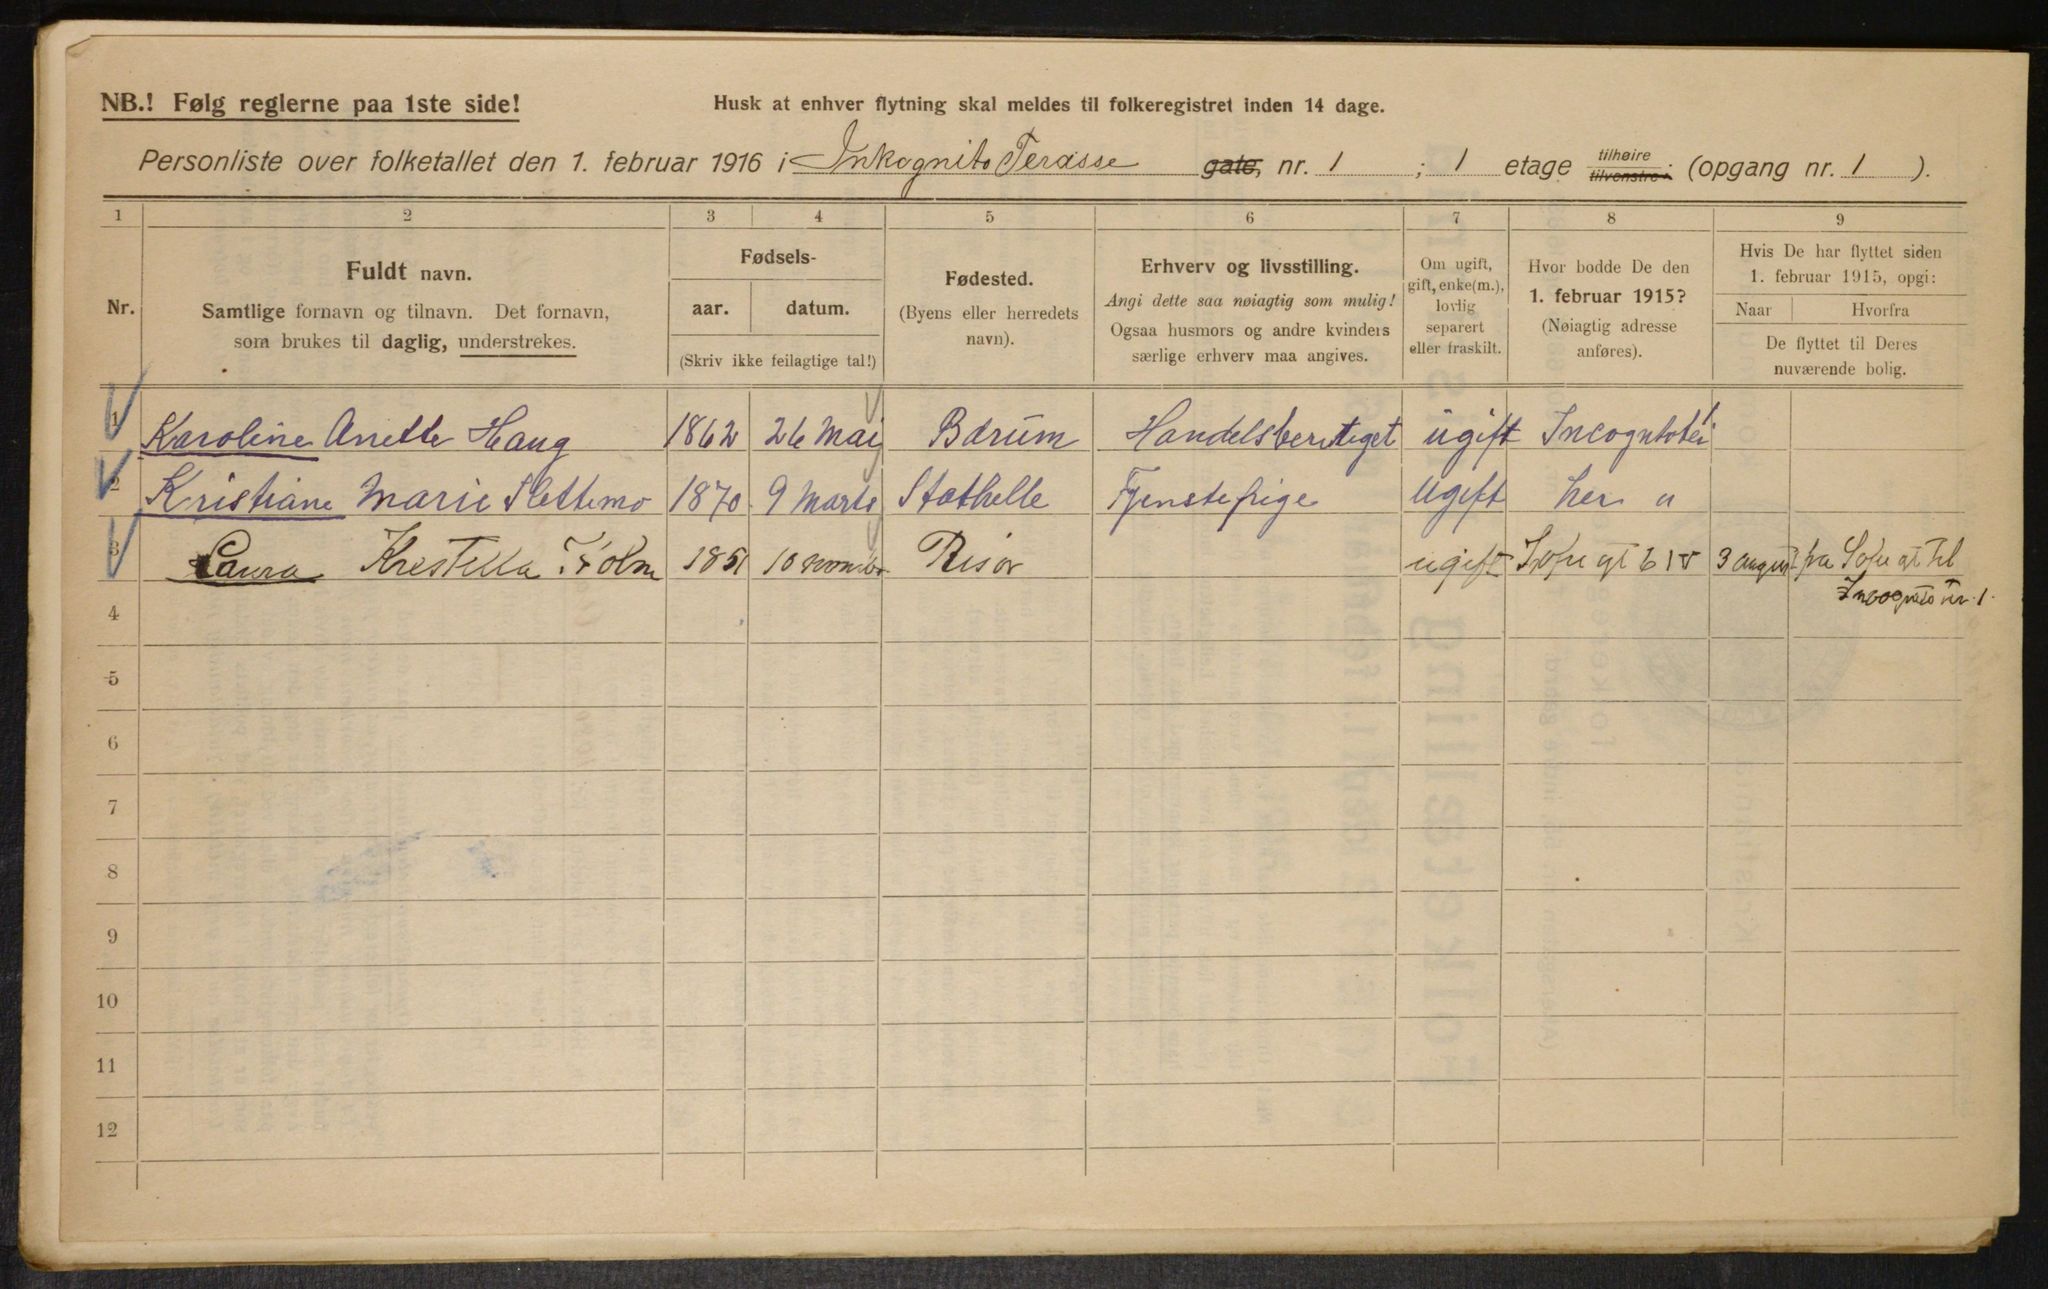 NB.! Følg reglerne paa 1ste side! Husk at enhver flytning skal meldes til folkeregistret inden 14 dage.
Personliste over folketallet den 1. februar 1916 i Inkognito Terasse gate, nr. 1 ; 1 etage tilhøire tilvenstre. (opgang nr. 1 ).
1 2 3 4 5 6 7 8 9
Nr.
Fuldt navn.
Samtlige fornavn og tilnavn. Det fornavn,
som brukes til daglig, understrekes.
Fødsels-
aar. datum.
(Skriv ikke feilagtige tal!)
Fødested.
(Byens eller herredets
navn).
Erhverv og livsstilling.
Angi dette saa nøiagtig som mulig!
Ogsaa husmors og andre kvinders
særlige erhverv maa angives.
Om ugift,
gift, enke(m.),
lovlig
separert
eller fraskilt.
Hvor bodde De den
1. februar 1915?
(Nøiagtig adresse
anføres).
Hvis De har flyttet siden
1. februar 1915, opgi:
Naar Hvorfra
De flyttet til Deres
nuværende bolig.
1 Karoline Anette Haug 1862 26 Mai Bærum Handelsberettiget ugift
2 Kristiane Marie Slettemo 1870 9 Marts Stathelle Tjenstepige Ugift her
3 Laura Holm 1851 10 Risør ugift Sofie gt 3 august fra Sofie gt til
Incognito ter. 1.
4
5
6
7
8
9
10
11
12